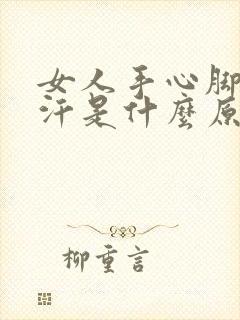 女人手心脚
汗是什麽原
柳重言